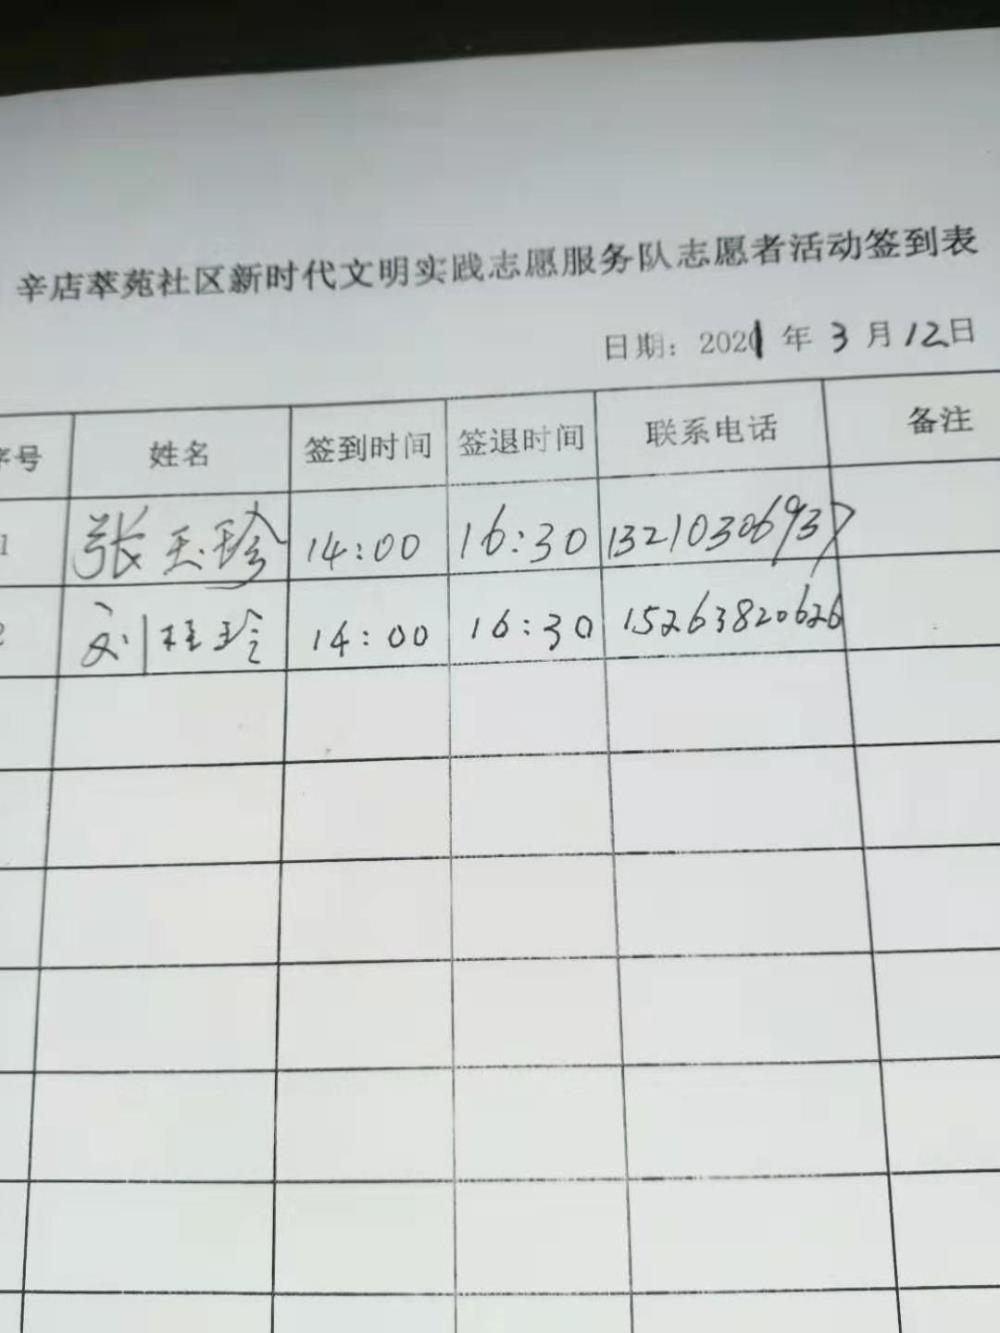 辛店萃苑社区新时代文明实践志愿服务队志愿者活动签到表
日期：2021年3月12日
序号 姓名 签到时间 签退时间 联系电话 备注
1 张玉珍 14:00 16:30 13210306937
2 刘桂玲 14:00 16:30 15263820626